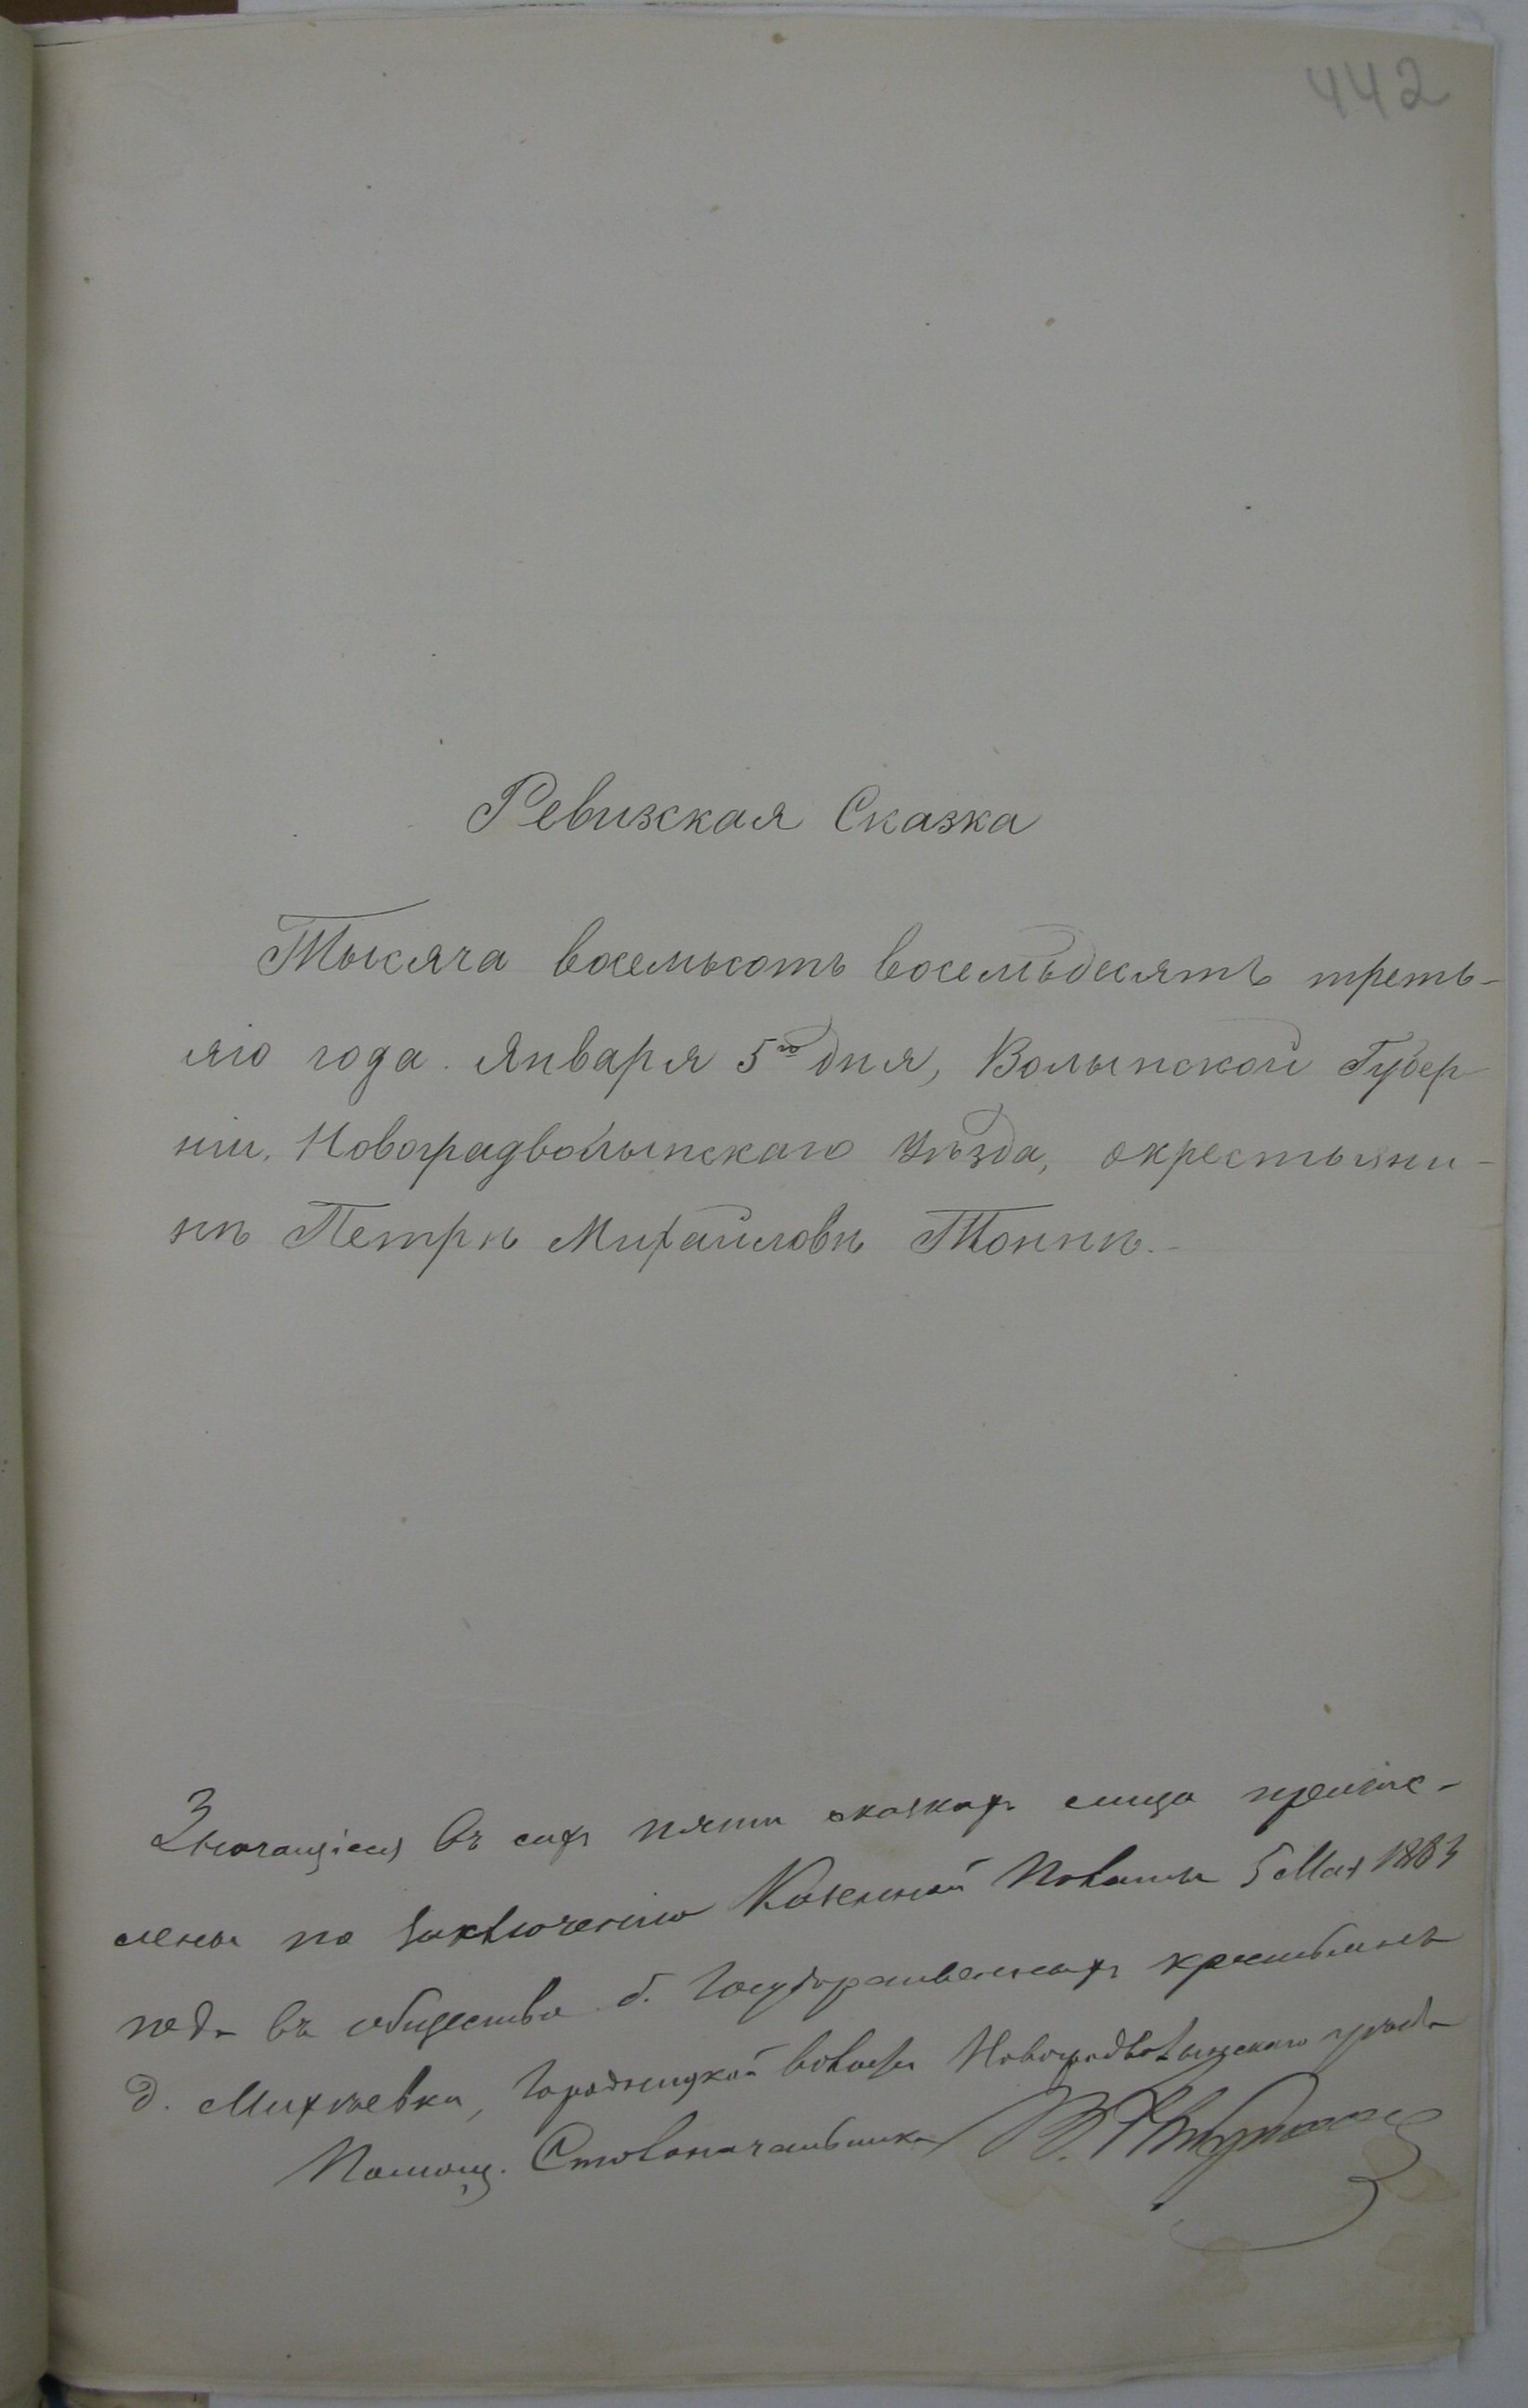 442
Ревизская Сказка
Тысяча восемьсотъ восемьдесятъ треть-
яго года. Января 5го дня, Волынской Губер
ніи, Новоградволынскаго Уѣзда, о крестьяни-
нѣ Петрѣ Михайловѣ
Значащіеся въ сихъ пяти сказкахъ лица причис-
лены по заключенію Казенной Палаты 5 Мая 1883
года въ общество б. Государственныхъ крестьянъ
д. Михѣевки, Городницкой волости Новоградволынскаго уѣзда
Помощ. Столоначальника В.